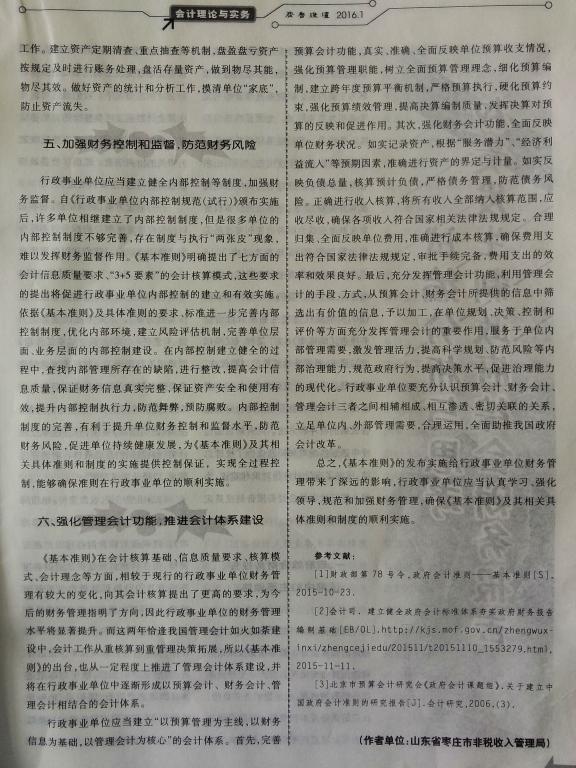 会计理论与实务
齐鲁珠坛 2016.1
工作。建立资产定期清查、重点抽查等机制,盘盈盘亏资产
按规定及时进行账务处理,盘活存量资产,做到物尽其能,
物尽其效。做好资产的统计和分析工作,摸清单位“家底”,
防止资产流失。
五、加强财务控制和监督,防范财务风险
行政事业单位应当建立健全内部控制等制度,加强财
务监督。自《行政事业单位内部控制规范(试行)》颁布实施
后,许多单位相继建立了内部控制制度,但是很多单位的
内部控制制度不够完善,存在制度与执行“两张皮”现象,
难以发挥财务监督作用。《基本准则》明确提出了七方面的
会计信息质量要求、“3+5要素”的会计核算模式,这些要求
的提出将促进行政事业单位内部控制的建立和有效实施。
依据《基本准则》及具体准则的要求,标准进一步完善内部
控制制度,优化内部环境,建立风险评估机制,完善单位层
面、业务层面的内部控制建设。在内部控制建立健全的过
程中,查找内部管理所存在的缺陷,进行整改,提高会计信
息质量,保证财务信息真实完整,保证资产安全和使用有
效,提升内部控制执行力,防范舞弊,预防腐败。内部控制
制度的完善,有利于提升单位财务控制和监督水平,防范
财务风险,促进单位持续健康发展,为《基本准则》及其相
关具体准则和制度的实施提供控制保证,实现全过程控
制,能够确保准则在行政事业单位的顺利实施。
六、强化管理会计功能,推进会计体系建设
《基本准则》在会计核算基础、信息质量要求、核算模
式、会计理念等方面,相较于现行的行政事业单位财务管
理有较大的变化,向其会计核算提出了更高的要求,为今
后的财务管理指明了方向,因此行政事业单位的财务管理
水平将显著提升。而这两年恰逢我国管理会计如火如荼建
设中,会计工作从重核算到重管理决策拓展,所以《基本准
则》的出台,也从一定程度上推进了管理会计体系建设,并
将在行政事业单位中逐渐形成以预算会计、财务会计、管
理会计相结合的会计体系。
行政事业单位应当建立“以预算管理为主线,以财务
信息为基础,以管理会计为核心”的会计体系。首先,完善
预算会计功能,真实、准确、全面反映单位预算收支情况,
强化预算管理职能,树立全面预算管理理念,细化预算编
制,建立跨年度预算平衡机制,严格预算执行,硬化预算约
束,强化预算绩效管理,提高决算编制质量,发挥决算对预
算的反映和促进作用。其次,强化财务会计功能,全面反映
单位财务状况。如实记录资产,根据“服务潜力”、“经济利
益流入”等预期因素,准确进行资产的界定与计量。如实反
映负债总量,核算预计负债,严格债务管理,防范债务风
险。正确进行收入核算,将所有收入全部纳入核算范围,应
收尽收,确保各项收入符合国家相关法律法规规定。合理
归集、全面反映单位费用,准确进行成本核算,确保费用支
出符合国家法律法规规定,审批手续完备,费用支出的效
率和效果良好。最后,充分发挥管理会计功能,利用管理会
计的手段、方式,从预算会计、财务会计所提供的信息中筛
选出有价值的信息,予以加工,在单位规划、决策、控制和
评价等方面充分发挥管理会计的重要作用,服务于单位内
部管理需要,激发管理活力,提高科学规划、防范风险等内
部治理能力,规范政府行为,提高决策水平,促进治理能力
的现代化。行政事业单位要充分认识预算会计、财务会计、
管理会计三者之间相辅相成、相互渗透、密切关联的关系,
立足单位内、外部管理需要,合理运用,全面助推我国政府
会计改革。
总之,《基本准则》的发布实施给行政事业单位财务管
理带来了深远的影响,行政事业单位应当认真学习、强化
领导,规范和加强财务管理,确保《基本准则》及其相关具
体准则和制度的顺利实施。
参考文献:
[1]财政部第78号令,政府会计准则——基本准则[S],
2015-10-23.
[2]会计司、建立健全政府会计标准体系夯实政府财务报告
编制基础[EB/OL].http://kjs.mof.gov.cn/zhengwux-
inxi/zhengcejiedu/201511/t20151110_1553279.html,
2015-11-11.
[3]北京市预算会计研究会《政府会计课题组》,关于建立中
国政府会计准则的研究报告[J].会计研究,2006,(3).
(作者单位:山东省枣庄市非税收入管理局)